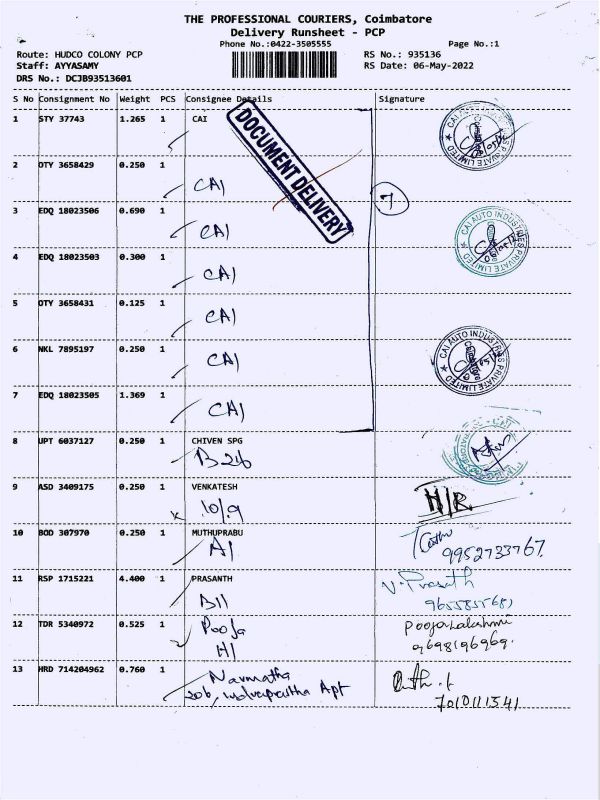 THE PROFESSIONAL COURIERS, Coimbatore
Delivery Runsheet - PCP
Phone No.:0422-3505555 Page No.:1
Route: HUDCO COLONY PCP RS No.: 935136
Staff: AYYASAMY RS Date: 06-May-2022
DRS No.: DCJB93513601
S No Consignment No Weight PCS Consignee Details Signature
1 STY 37743 1.265 1 CAI
DOCUMENT DELIVERY
CAI AUTO INDUSTRIES PRIVATE LIMITED
2 OTY 3658429 0.250 1
CAI
7
3 EDQ 18023506 0.690 1
CAI
CAI AUTO INDUSTRIES PRIVATE LIMITED
4 EDQ 18023503 0.300 1
CAI
5 OTY 3658431 0.125 1
CAI
6 NKL 7895197 0.250 1
CAI
CAI AUTO INDUSTRIES PRIVATE LIMITED
7 EDQ 18023505 1.369 1
CAI
8 UPT 6037127 0.250 1 CHIVEN SPG
B 26
9 ASD 3409175 0.250 1 VENKATESH
10/9 H/R
10 BOD 307970 0.250 1 MUTHUPRABU
A1 9952733767
11 RSP 1715221 4.400 1 PRASANTH
B11 V. Prasath
12 TDR 5340972 0.525 1 Pooja
H1 Poojalakshmi
9698196969.
13 HRD 714204962 0.760 1 Narmatha
206, Apt
7010111541